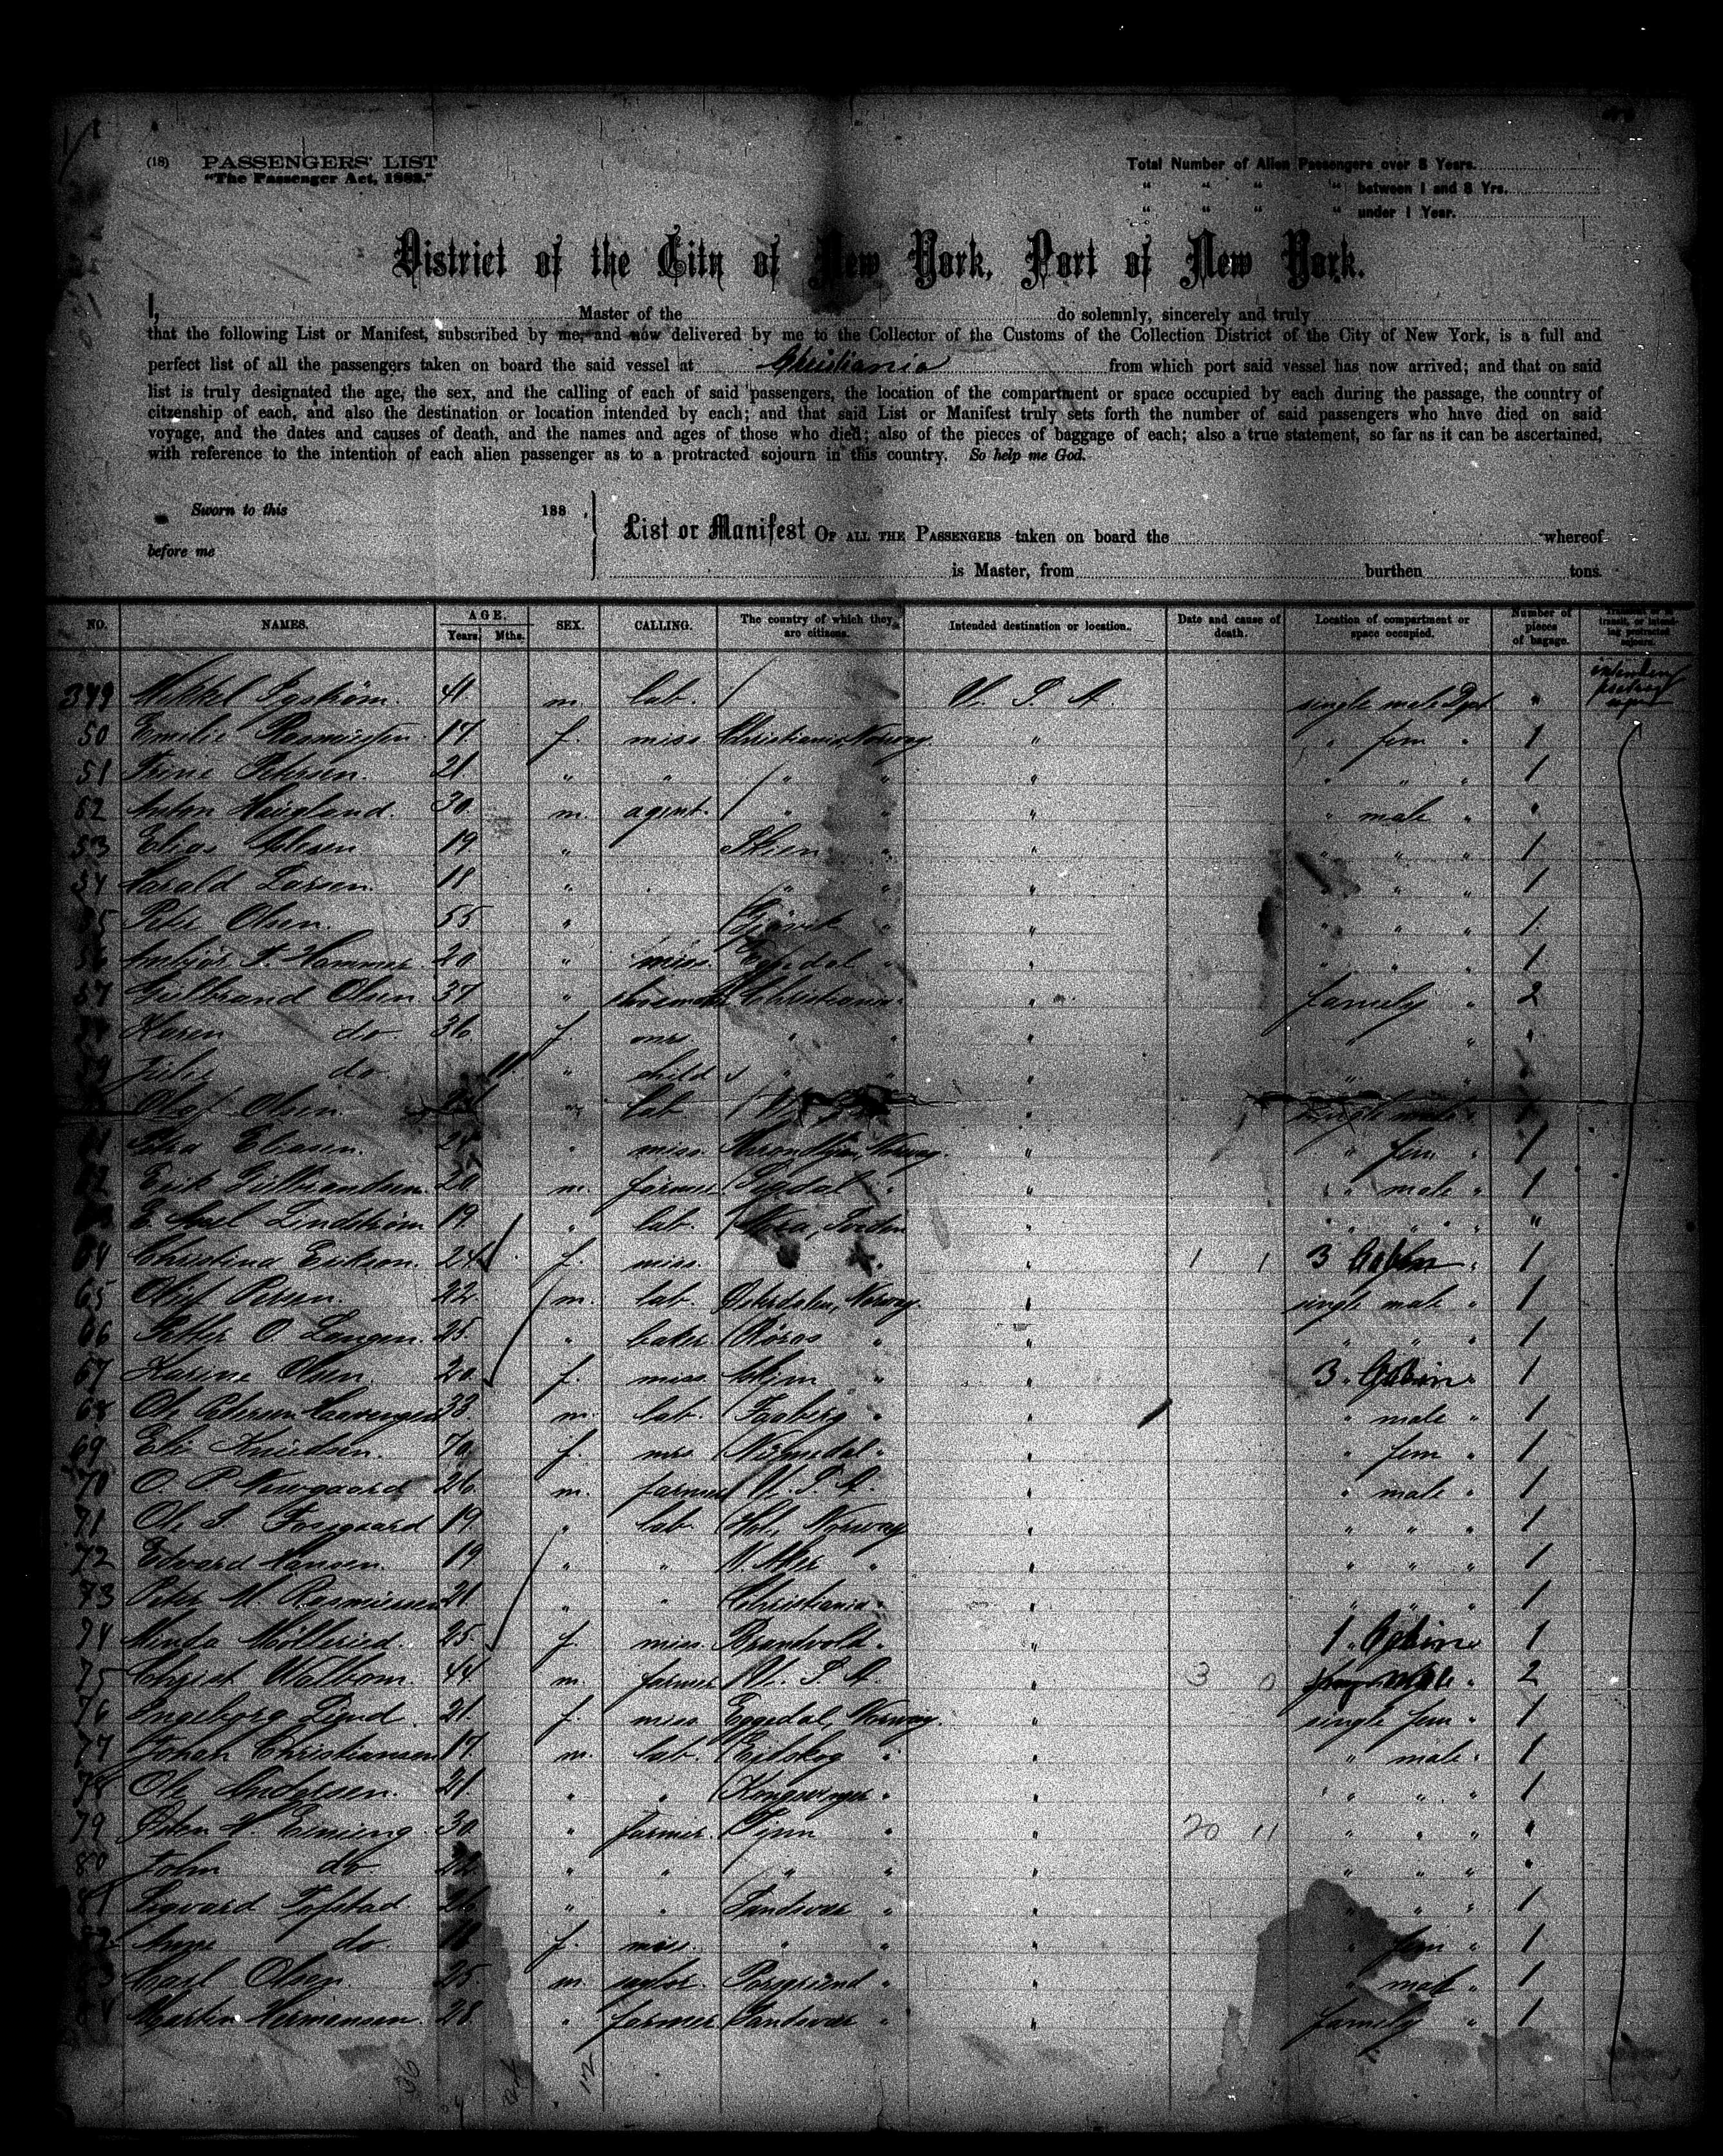 (18) PASSENGERS' LIST
"The Passenger Act, 1882."
Total Number of Alien Passengers over 8 Years.
" " " " between 1 and 8 Yrs.
" " " " under 1 Year.
District of the City of New York, Port of New York.
I, Master of the do solemnly, sincerely and truly
that the following List or Manifest, subscribed by me, and now delivered by me to the Collector of the Customs of the Collection District of the City of New York, is a full and
perfect list of all the passengers taken on board the said vessel at Christiania from which port said vessel has now arrived; and that on said
list is truly designated the age, the sex, and the calling of each of said passengers, the location of the compartment or space occupied by each during the passage, the country of
citzenship of each, and also the destination or location intended by each; and that said List or Manifest truly sets forth the number of said passengers who have died on said
voyage, and the dates and causes of death, and the names and ages of those who died; also of the pieces of baggage of each; also a true statement, so far as it can be ascertained,
with reference to the intention of each alien passenger as to a protracted sojourn in this country. So help me God.
Sworn to this 188 .
before me
List or Manifest OF ALL THE PASSENGERS taken on board the whereof
is Master, from burthen tons.
NO. NAMES. AGE. Years. Mths. SEX. CALLING. The country of which they are citizens. Intended destination or location. Date and cause of death. Location of compartment or space occupied. Number of pieces of bagage.
349 Mikkel Egström. 41. m. lab. U. S. A. single male Dpt "
50 Emilie Rasmussen 17 f. miss Christiania, Norway. " " fem " 1
51 Trine Petersen. 21. " " " " " " " " 1
52 Anton Haugland. 30. m. agent. " " " " male " "
53 Elias 19 " Skien " " " " " 1
54 Harald Larsen. 18 " " " " " " " " 1
55 Peter Olsen. 55. " Gjövik " " " " " 1
56 Hammer 20 " miss. Eggedal " " " " " 1
57 Gulbrand Olsen 37 " Christiania " " family " 2
Karen do 36. f. mrs " " " " " "
do 11. " child " " " " "
Olaf Olsen. " lab "
61 Eliasen. " miss. Throndhjem, Norway. " " fem " 1
62 Erik Gulbrandsen. 20 m. farmer " " " male " 1
E. Axel Lindström 19. " lab. Sveden " " " " "
64 Christina Erikson. 24 f. miss. " " 1 1 3 Cabin " 1
65 Olaf Persen. 22 m. lab. Österdalen, Norway. " single male " 1
66 Petter O. Langen. 25. " baker Röros " " " " " 1
67 Karine Olsen. 20 f. miss. " " 3 " Cabin " 1
68 Ole Petersen 33. m. lab. Faaberg " " " male " 1
69 Eli Knudsen. 70 f. mrs " " " fem " 1
70 O. P. 26. m. farmer U. S. A. " " male " 1
71 Ole S. 19. " lab. Hol, Norway " " " " 1
72 Edvard Hansen. 19 " " V. Aker " " " " " 1
73 Peter M. Rasmussen 21. " " Christiania " " " " " 1
74 Minda Möllerud. 25. f. miss. Brandvold " " 1 " Cabin " 1
75 44. m. farmer U. S. A. " 3 0 " 2
76 Ingeborg Lund 21. f. miss Eggedal, Norway. " single fem " 1
77 Johan Christiansen 17. m. lab. Eidskog " " " male " 1
78 Ole Andersen. 21. " " Kongsvinger " " " " " 1
79 30 " farmer. Tynn " " 20 11 " " " "
80 John do 22 " " " " " " " " "
81 Tofstad. 26. " " Sandsvær " " " " " 1
82 Anne do. 18 f. miss. " " " " fem " 1
83 Carl Olsen. 25. m. Porsgrund " " " male " 1
84 Martin Hermansen. 28 " farmer Sandsvær " " family " 1